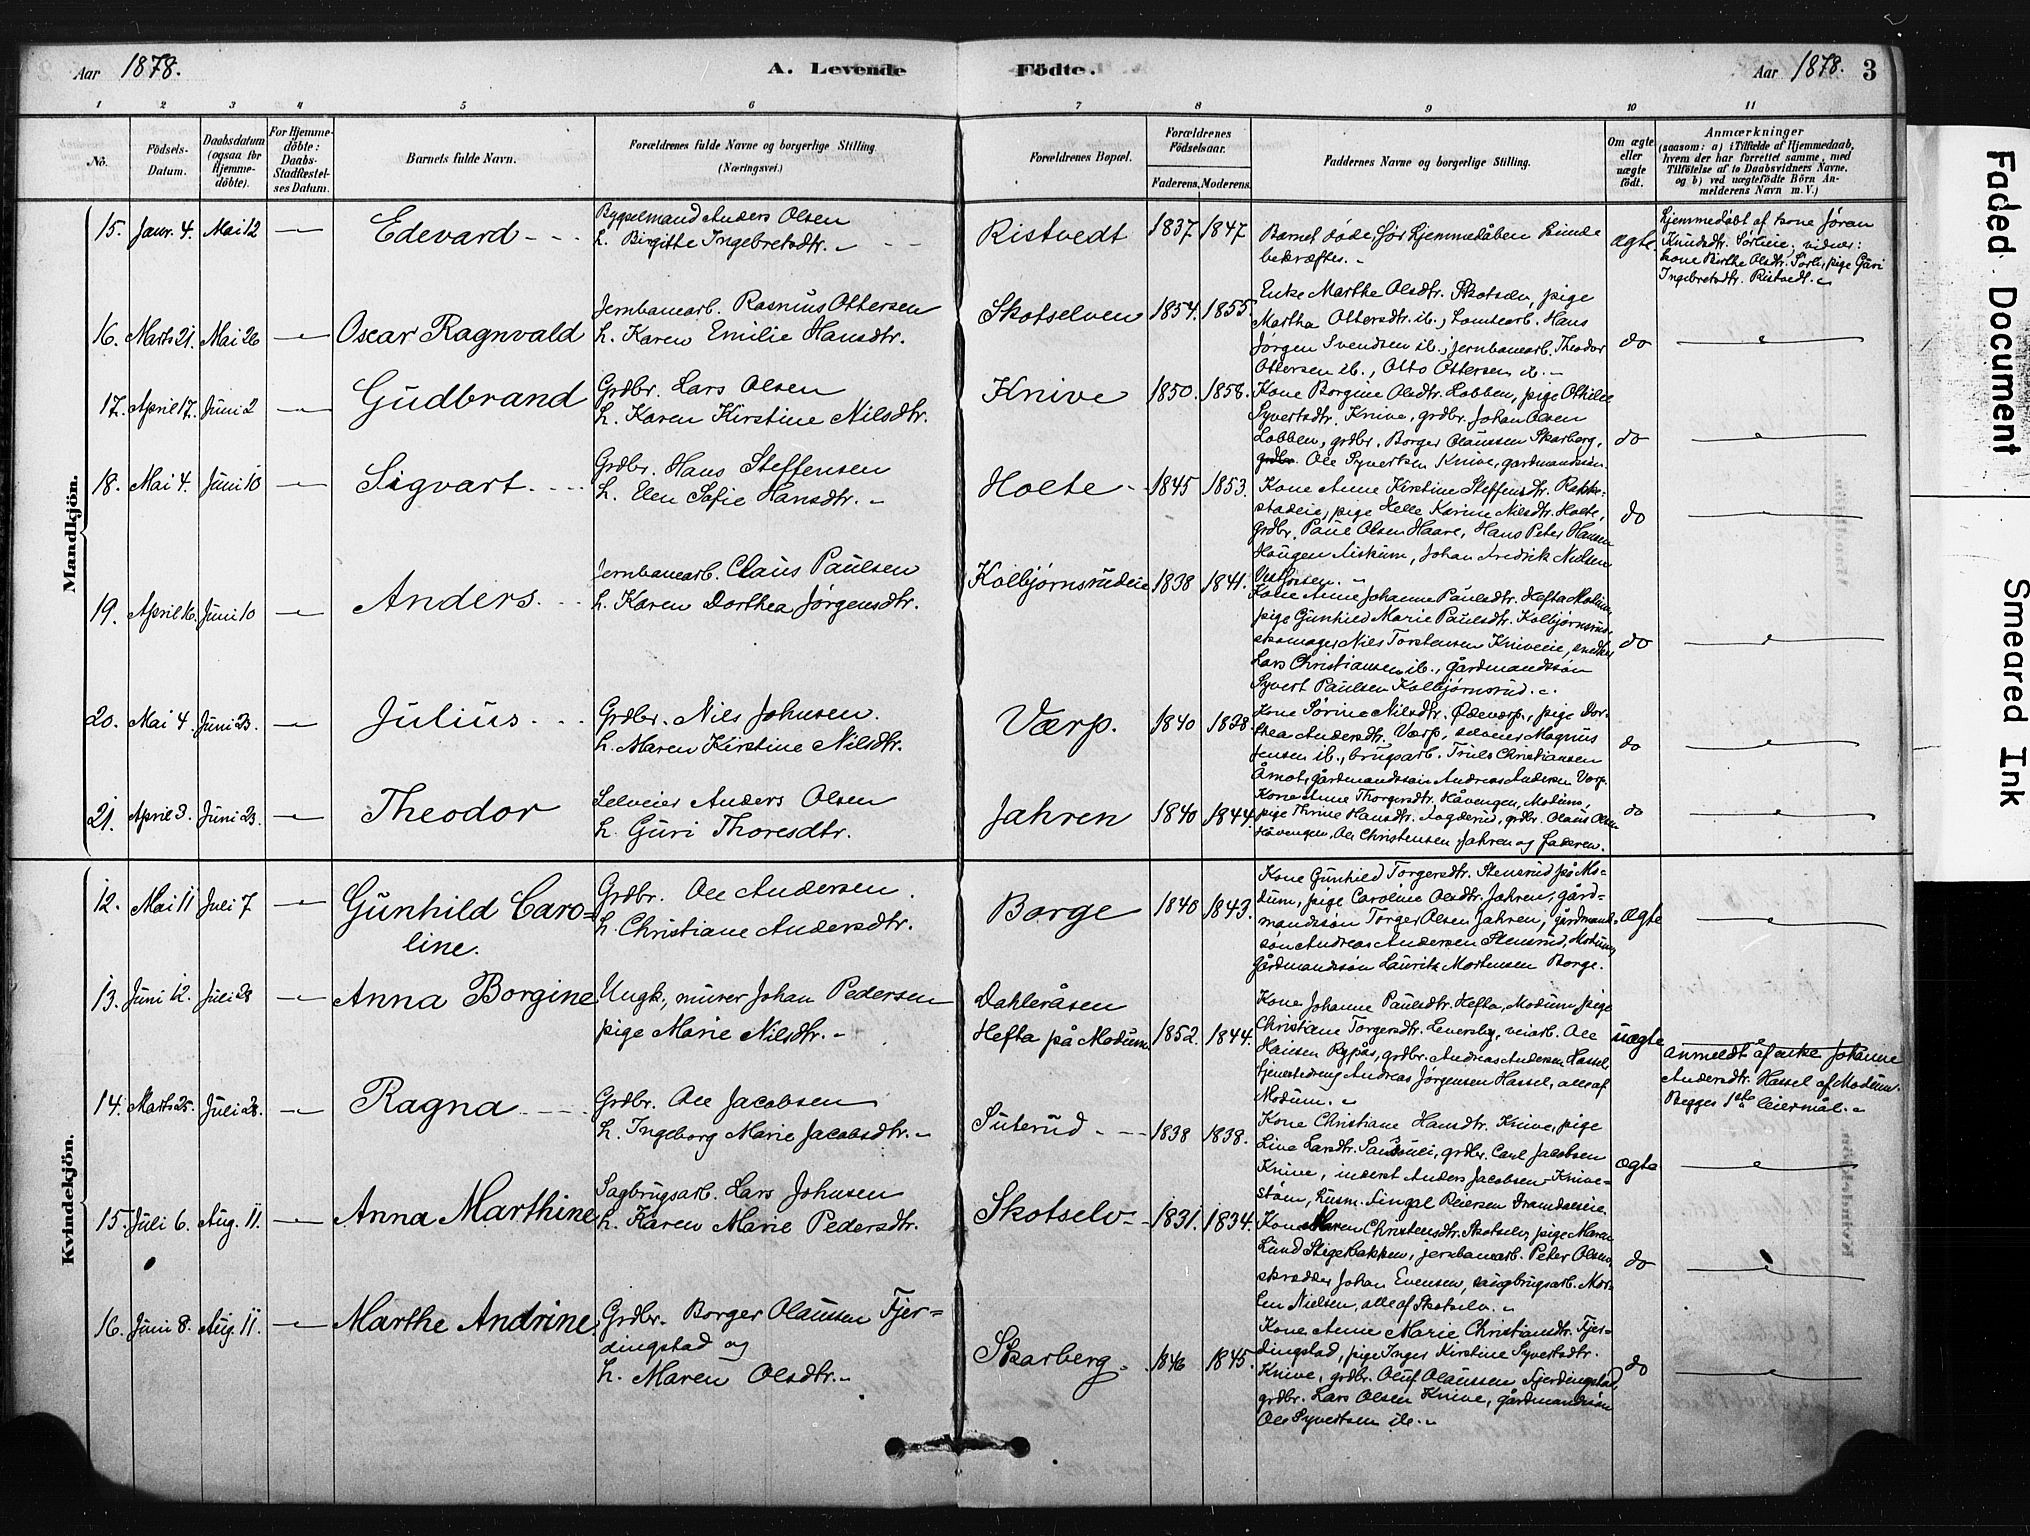 Aar 1878. A. Levende Födte. Aar 1878. 3
1 2 3 4 5 6 7 8 9 10 11
No.
Födsels-Datum.
Daabsdatum (ogsaa for Hjemme-döbte).
For Hjemme-döbte: Daabs-Stadfæstel-ses Datum.
Barnets fulde Navn.
Forældrenes fulde Navne og borgerlige Stilling. (Næringsvei.)
Forældrenes Bopæl.
Forældrenes Födselsaar.
Faderens. Moderens.
Faddernes Navne og borgerlige Stilling.
Om ægte eller uægte født.
Anmærkninger
(saasom: a) i Tilfælde af Hjemmedaab,
hvem der har forrettet samme, med
Tilföielse af to Daabsvidners Navne.
og b) ved uægtefödte Börn An-
melderens Navn m. V.)
Mandkjön.
15. Janr. 4. Mai 12 — Edevard
Bygselmand Anders Olsen
h. Birgitte Ingebretsdtr.
Ristvedt 1837 1847
Barnet døde før hjemmedåben kunde
bekræftes.
ægte
Hjemmedøbt af kone Jøran
Knudsdtr. Sørlie; vidner:
kone Birthe Olsdtr. Sørli, pige Guri
Ingebretsdtr. Ristvedt.
16. Marts 21. Mai 26 — Oscar Ragnvald
Jernbanearb. Rasmus Ottersen
h. Karen Emilie Hansdtr.
Skotselven 1854. 1855.
Enke Marthe Olsdtr. Skotselv, pige
Martha Ottersdtr. ib., tomtearb. Hans
Jørgen Svendsen ib., jernbanearb. Theodor
Ottersen ib., Otto Ottersen ib.
do
17. April 17. Juni 2 — Gudbrand
Grdbr. Lars Olsen
h. Karen Kirstine Nilsdtr.
Knive 1850. 1858.
Kone Borgine Olsdtr. Lobben, pige Othilie
Syvertsdtr. Knive, grdbr. Johan Olsen
Lobben, grdbr. Borger Olaussen Skarberg,
grdbr. Ole Syvertsen Knive, gardmandssøn.
do
18. Mai 4. Juni 10 — Sigvart
Grdbr. Hans Steffensen
h. Elen Sofie Hansdtr.
Holte 1845 1853.
Kone Anne Kirstine Steffensdtr. Rakke-
stadeie, pige Helle Karine Nilsdtr. Holte,
grdbr. Paul Olsen Haare, Hans Peter Hansen
Haugen Fiskum, Johan Fredrik Nielsen
Vestfossen.
do
19. April 16. Juni 10 — Anders
Jernbanearb. Claus Paulsen
h. Karen Dorthea Jørgensdtr.
Kolbjørnsrudeie 1838 1841.
Kone Anne Johanne Paulsdtr. Hefta Modum,
pige Gunhild Marie Paulsdtr. Kolbjørnsrud,
skomager Nils Torstensen Kniveeie, snedker
Lars Christiansen ib., gårdmandssøn
Syvert Paulsen Kolbjørnsrud.
do
20. Mai 4. Juni 23. — Julius
Grdbr. Nils Johnsen.
h. Maren Kirstine Nilsdtr.
Værp. 1840 1838.
Kone Sørine Nilsdtr. Ødeværp, pige Dor-
thea Andersdtr. Værp, selveier Magnus
Jensen ib., brugsarb. Truls Christiansen
Åmot, gårdmandssøn Andreas Andersen Værp.
do
21. April 3. Juni 23. — Theodor
Selveier Anders Olsen
h. Guri Thoresdtr.
Jahren 1840 1844.
Kone Anne Thorgersdtr. Håvengen, Modum,
pige Thrine Hansdtr. , grdbr. Olaus Olsen
Håvengen, Ole Christensen Jahren og faderen.
do
Kvindekjön.
12. Mai 11 Juli 7 — Gunhild Caro=
line.
Grdbr. Ole Andersen.
h. Christiane Andersdtr.
Borge 1840 1843.
Kone Gunhild Torgersdtr. Stensrud på Mo-
dum, pige Caroline Olsdtr. Jahren, gård-
mandssøn Torger Olsen Jahren, gårdmands-
søn Andreas Andersen Stensrud, Modum,
gårdmandssøn Lauritz Mortensen Borge.
ægte
13. Juni 12. Juli 28 — Anna Borgine
Ungk., murer Johan Pedersen
pige Marie Nilsdtr.
Dahleråsen
Hefta på Modum 1852. 1844.
Kone Johanne Paulsdtr. Hefta, Modum, pige
Christiane Torgersdtr. Leversby, veiarb. Ole
Hansen Rypås, grdbr. Andreas Andersen Hassel,
tjenestedreng Andreas Jørgensen Hassel, alle af
Modum.
uægte
Anmeldt af enke Johanne
Andersdtr. Hassel af Modum.
Begges 1ste leiermål.
14. Marts 25. Juli 28. — Ragna
Grdbr. Ole Jacobsen
h. Ingeborg Marie Jacobsdtr.
Suterud 1838 1838.
Kone Christiane Hansdtr. Knive, pige
Line Larsdtr. , grdbr. Carl Jacobsen
Knive, inderst Anders Jacobsen Knive-
støen, husm. Fingal Reiersen .
ægte
15. Juli 6. Aug. 11. — Anna Marthine
Sagbrugsarb. Lars Johnsen
h. Karen Marie Pedersdtr.
Skotselv 1831. 1834.
Kone Maren Christensdtr. Skotselv, pige Maren
Lund Stigerbakken, jernbanearb. Peter Olsen,
skrædder Johan Evensen, saugbrugsarb. Mor-
ten Nielsen, alle af Skotselv.
do
16. Juni 8. Aug. 11. — Marthe Andrine
Grdbr. Borger Olaussen Fjer=
dingstad og
h. Maren Olsdtr.
Skarberg 1846 1845.
Kone Anne Marie Christiansdtr. Fjer=
dingstad, pige Inger Kirstine Syvertsdtr.
Knive, grdbr. Oluf Olaussen Fjerdingstad,
grdbr. Lars Olsen Knive, gårdmandssøn
Ole Syvertsen ib.
do
Faded Document
Smeared Ink